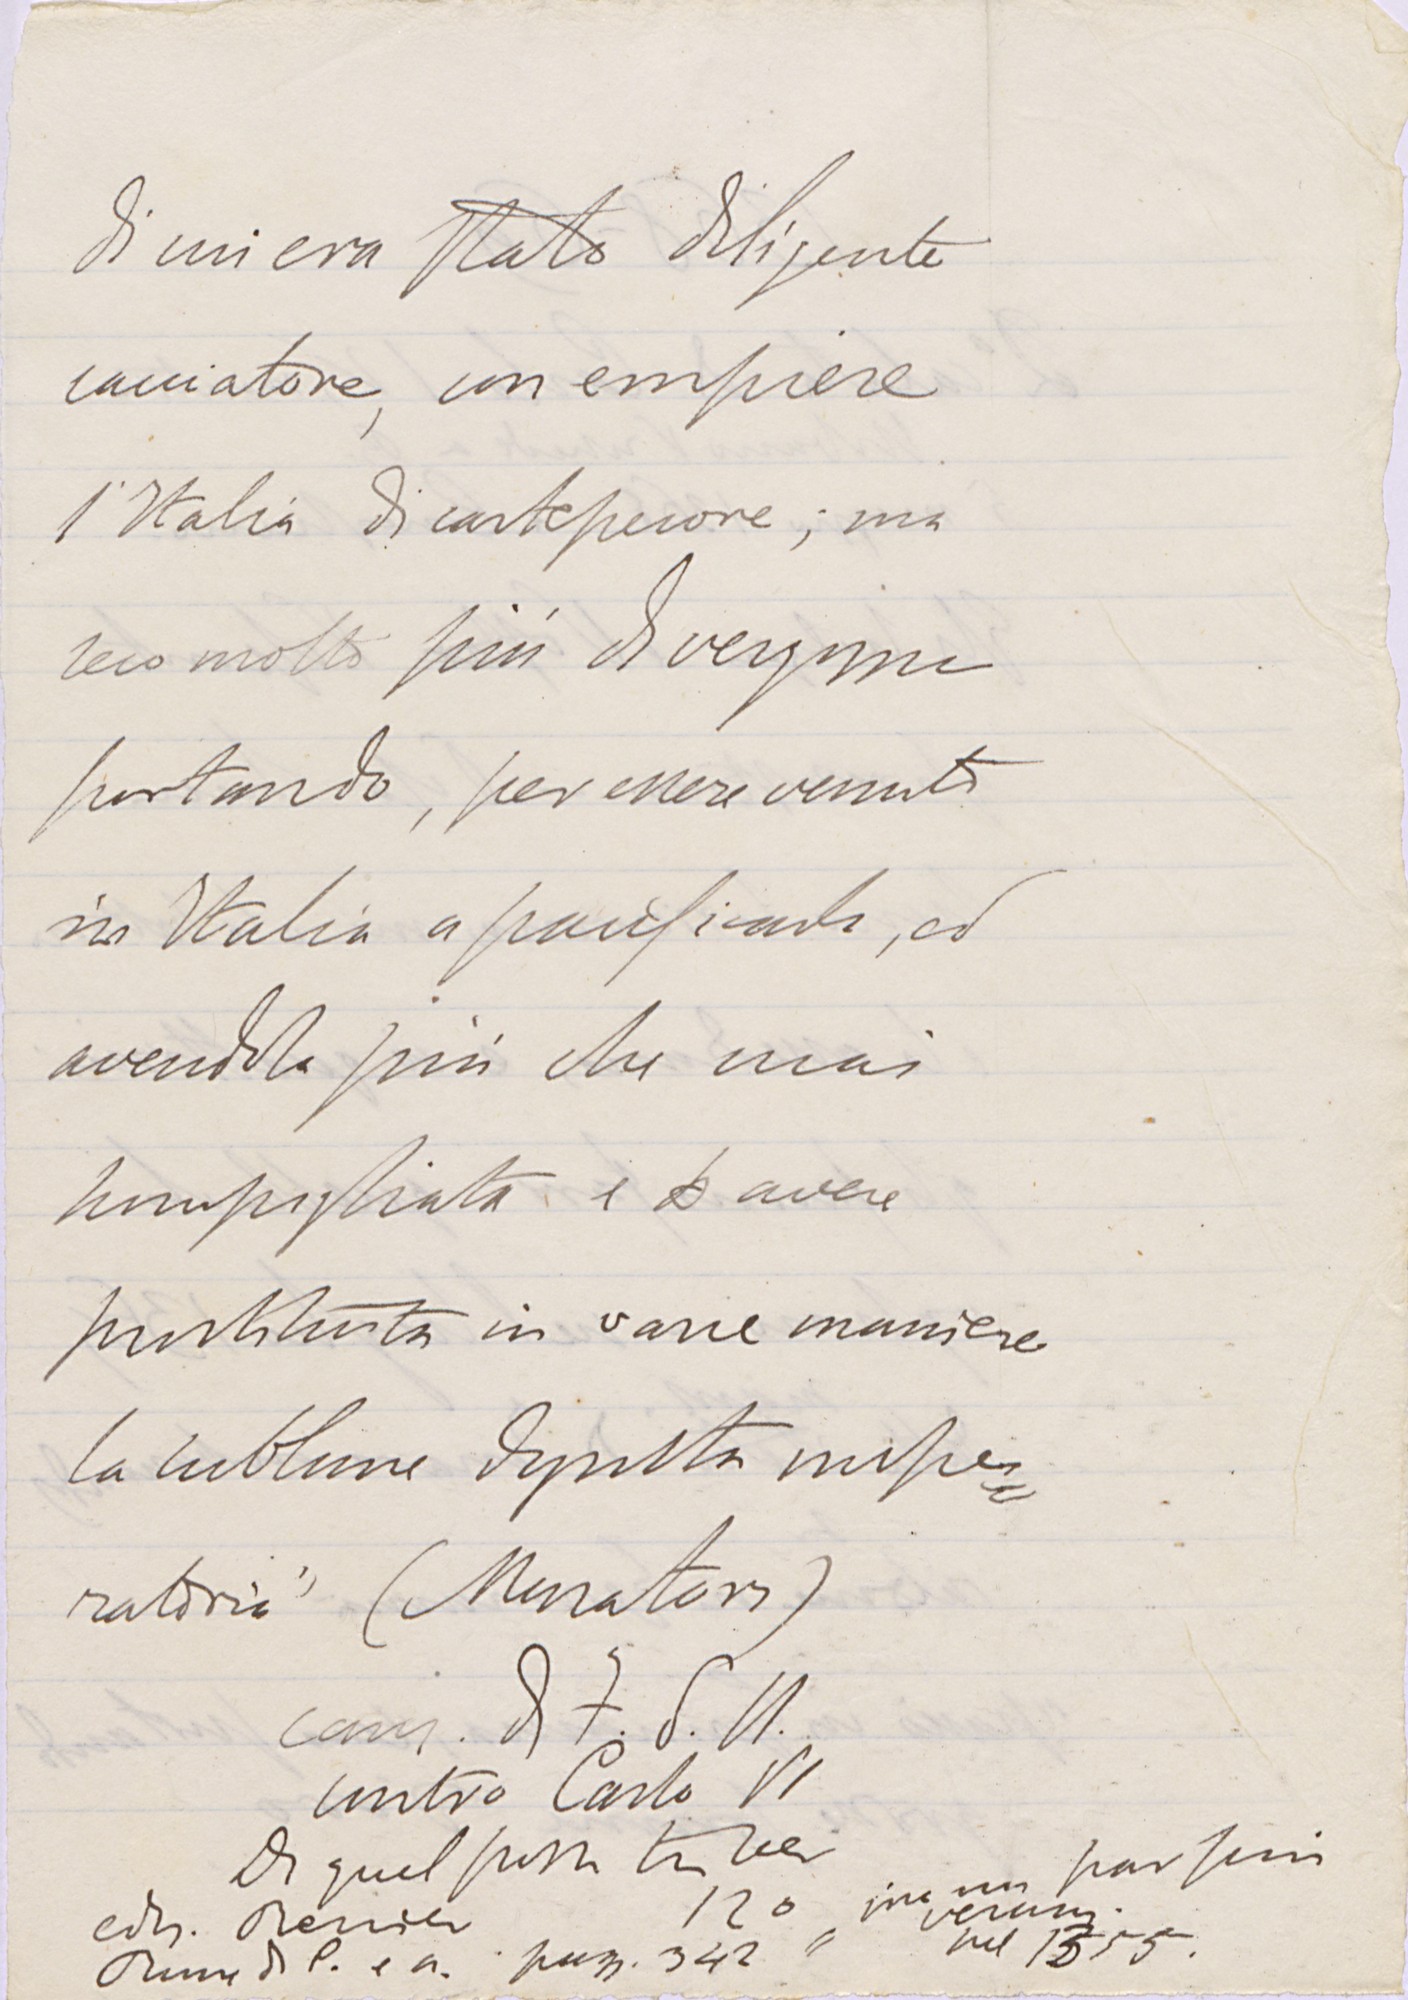 di cui era stato diligente
cacciatore, con empiere
l'Italia di cartepecore; ma
seco molto più di vergogna
portando, per essere venuto
in Italia a pacificarla, ed
avendola più che mai
scompigliata e d avere
prostituita in varie maniere
la sublime dignità impe=
ratoria" (Muratori)
canz. di F. d. U.
contro Carlo IV
Di quel possi tu ber
ediz. Renier 120
Rime di C. e a. pagg. 342 "
par più
veram.
nel 1355.